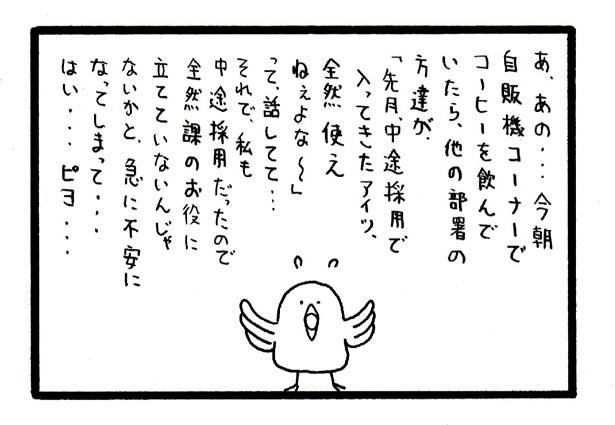 あ、あの・・・今朝
自販機コーナーで
コーヒーを飲んで
いたら、他の部署の
方達が、
「先月、中途採用で
入ってきたアイツ、
全然使え
ねぇよな〜」
って、話してて・・・
それで、私も
中途採用だったので
全然課のお役に
立てていないんじゃ
ないかと、急に不安に
なってしまって・・・
はい・・・ピヨ・・・